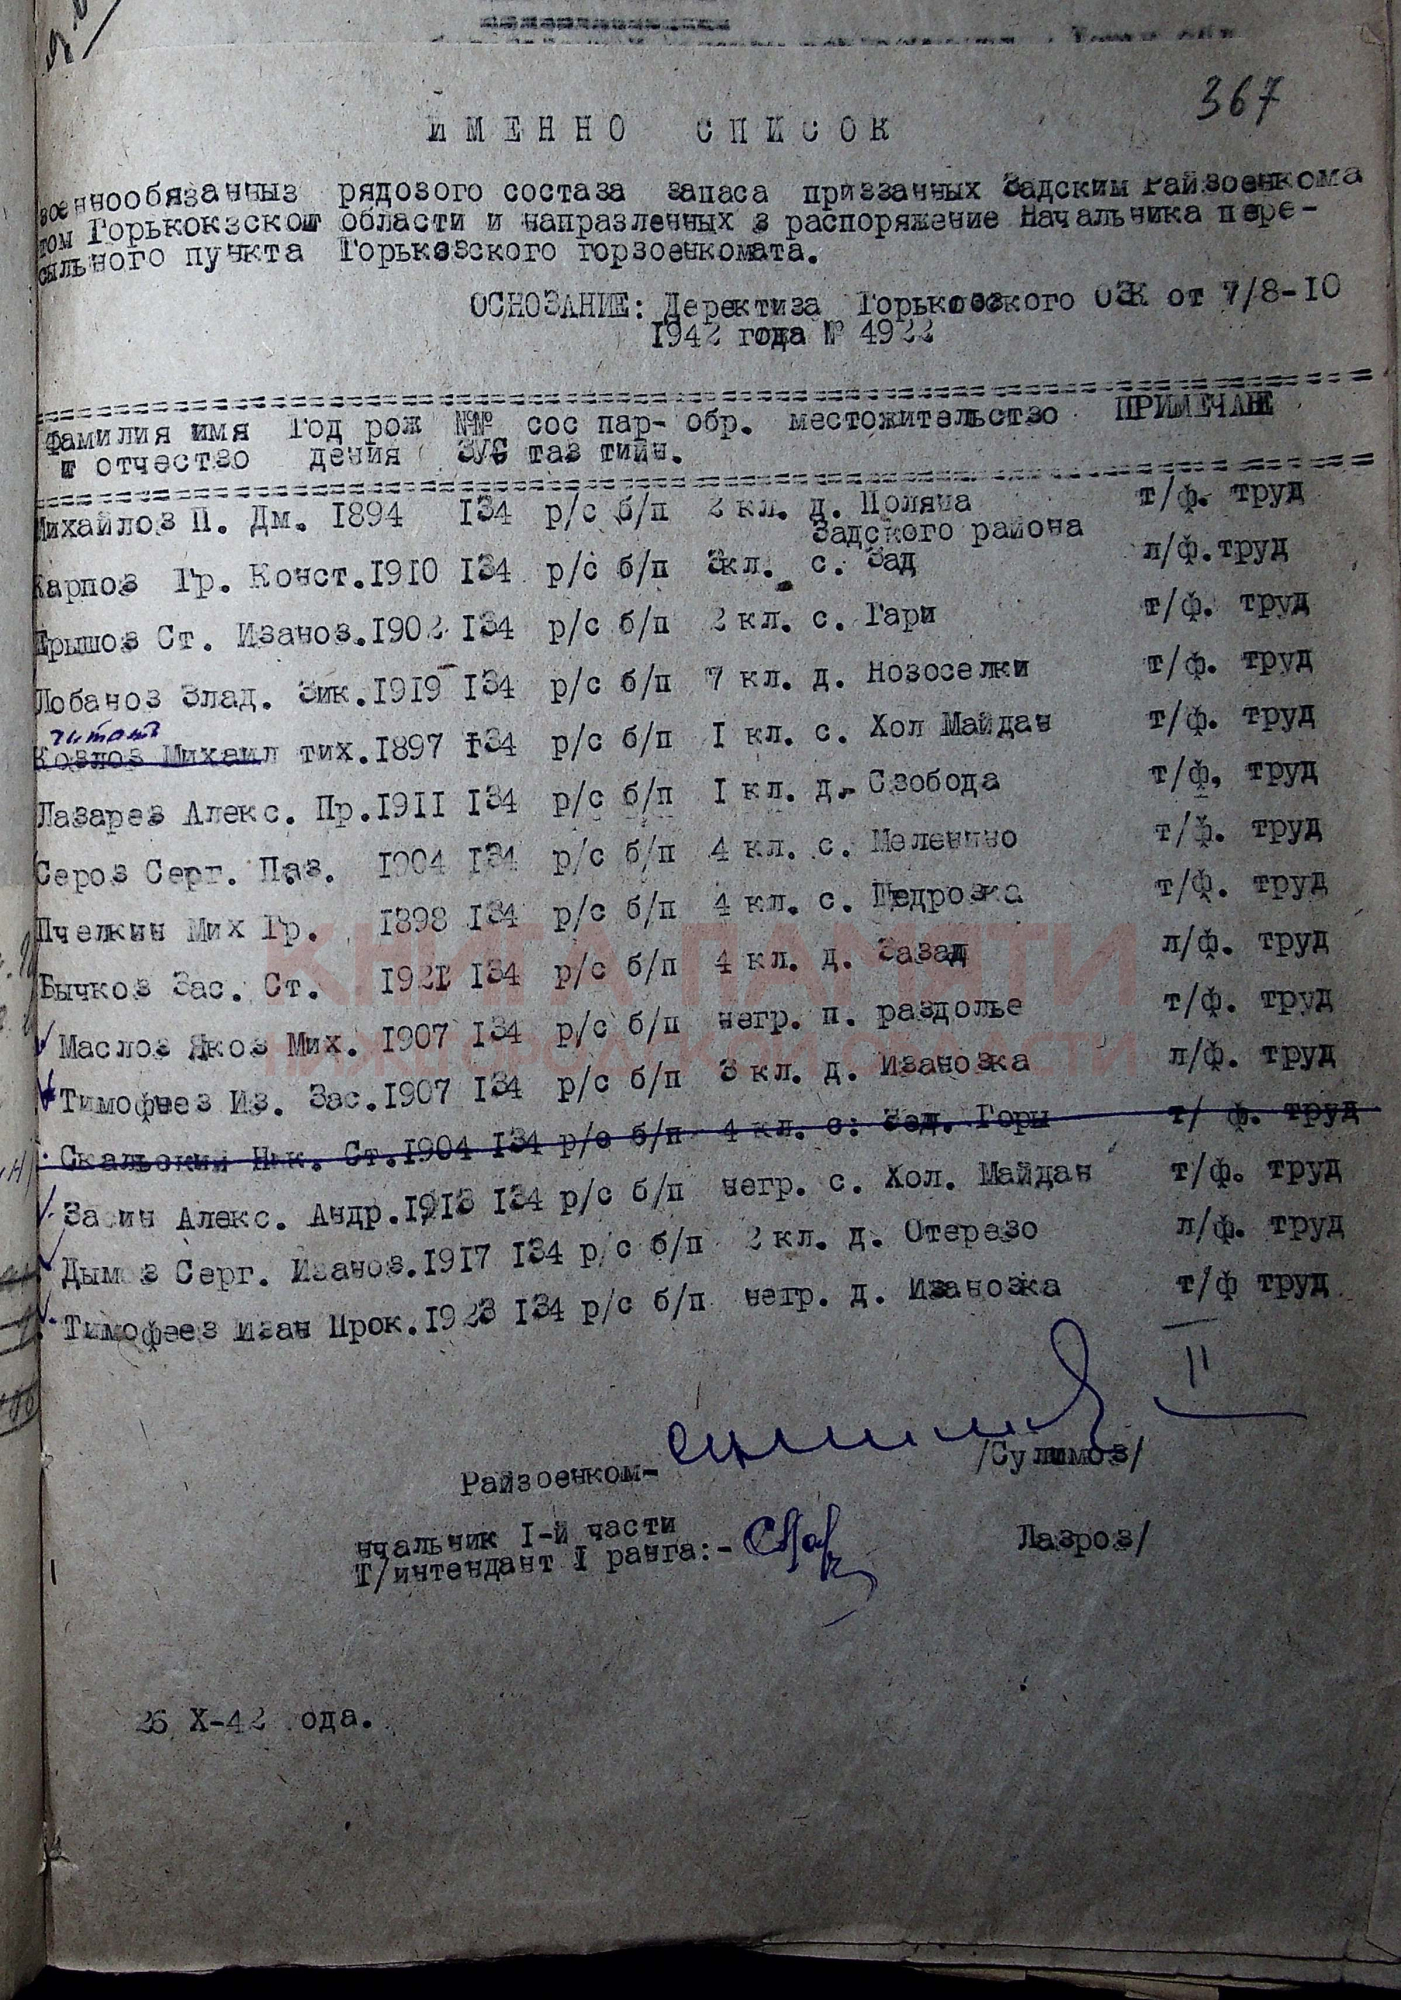 367
ИМЕННО СПИСОК
военнообязанныз рядозого состаза запаса призванных Задским Райзоенкома
том Горькокзской области и направленных з распоряжение Начальника пере-
сыльного пункта Горькозского горзоенкомата.
ОСНОЗАНИЕ: Деректиза Горькозского ОЗК от 7/8-10
1942 года № 4922
Фамилия имя Год рож №№ сос пар- обр. местожительстзо ПРИМЕЧАНЕ
и отчестзо дения ЗУС таз тийн.
Михайлоз П. Дм. 1894 134 р/с б/п 2 кл. д. Поляна т/ф. труд
Задского района
Карпоз Гр. Конст.1910 134 р/с б/п 3кл. с. Зад л/ф.труд
Ерышоз Ст. Изаноз.1902 134 р/с б/п 2 кл. с. Гари т/ф. труд
Лобаноз Злад. Зик.1919 134 р/с б/п 7 кл. д. Нозоселки т/ф. труд
читать
Козлоз Михаил тих.1897 134 р/с б/п I кл. с. Хол Майдан т/ф. труд
Лазарез Алекс. Пр.1911 134 р/с б/п I кл. д. Слобода т/ф, труд
Сероз Серг. Паз. 1904 134 р/с б/п 4 кл. с. Меленино т/ф. труд
Пчелкин Мих Гр. 1898 134 р/с б/п 4 кл. с. Щедрозка т/ф. труд
Бычкоз Зас. Ст. 1921 134 р/с б/п 4 кл. д. Зазад л/ф. труд
Маслоз Якоз Мих. 1907 134 р/с б/п негр. п. раздолье т/ф. труд
Тимофеез Из. Зас.1907 134 р/с б/п 3 кл. д. Изанозка л/ф. труд
Скальский Ник. Ст.1904 134 р/с б/п 4 кл. с: Зед. Горы т/ ф. труд
Засин Алекс. Андр.1913 134 р/с б/п негр. с. Хол. Майдан т/ф. труд
Дымоз Серг. Изаноз.1917 134 р/с б/п 2 кл. д. Отерезо л/ф. труд
Тимофеез Изан Прок.1923 134 р/с б/п негр. д. Изанозка т/ф труд
II
Райзоенком- /Сулимоз/
нчальник I-й части
Т/интендант I ранга:- Лазроз/
26 X-42 ода.
КНИГА ПАМЯТИ
НИЖЕГОРОДСКОЙ ОБЛАСТИ